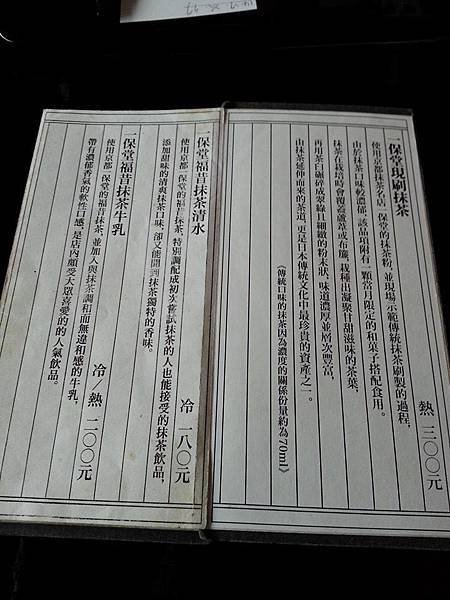 一保堂現刷抹茶
熱 三〇〇元
使用京都抹茶名店一保堂的抹茶粉，並現場示範傳統抹茶刷製的過程，
由於抹茶口味較濃郁，該品項附有一顆當月限定的和菓子搭配食用。
抹茶在栽培時會覆蓋蘆葦或布簾，栽種出凝聚甘甜滋味的茶葉，
再用茶臼碾碎成翠綠且細緻的粉末狀，味道濃厚並層次豐富，
由抹茶延伸而來的茶道，更是日本傳統文化中最珍貴的資產之一。
《傳統口味的抹茶因為濃度的關係份量約為70ml》
一保堂福昔抹茶清水
冷 一八〇元
使用京都一保堂的福昔抹茶，特別調配成初次嘗試抹茶的人也能接受的抹茶飲品，
添加甜味的清爽抹茶口味，卻又能開到抹茶獨特的香味。
一保堂福昔抹茶牛乳
冷／熱 二〇〇元
使用京都一保堂的福昔抹茶，並加入與抹茶調和而無違和感的牛乳，
帶有濃郁香氣的軟性口感，是店內頗受大眾喜愛的的人氣飲品。